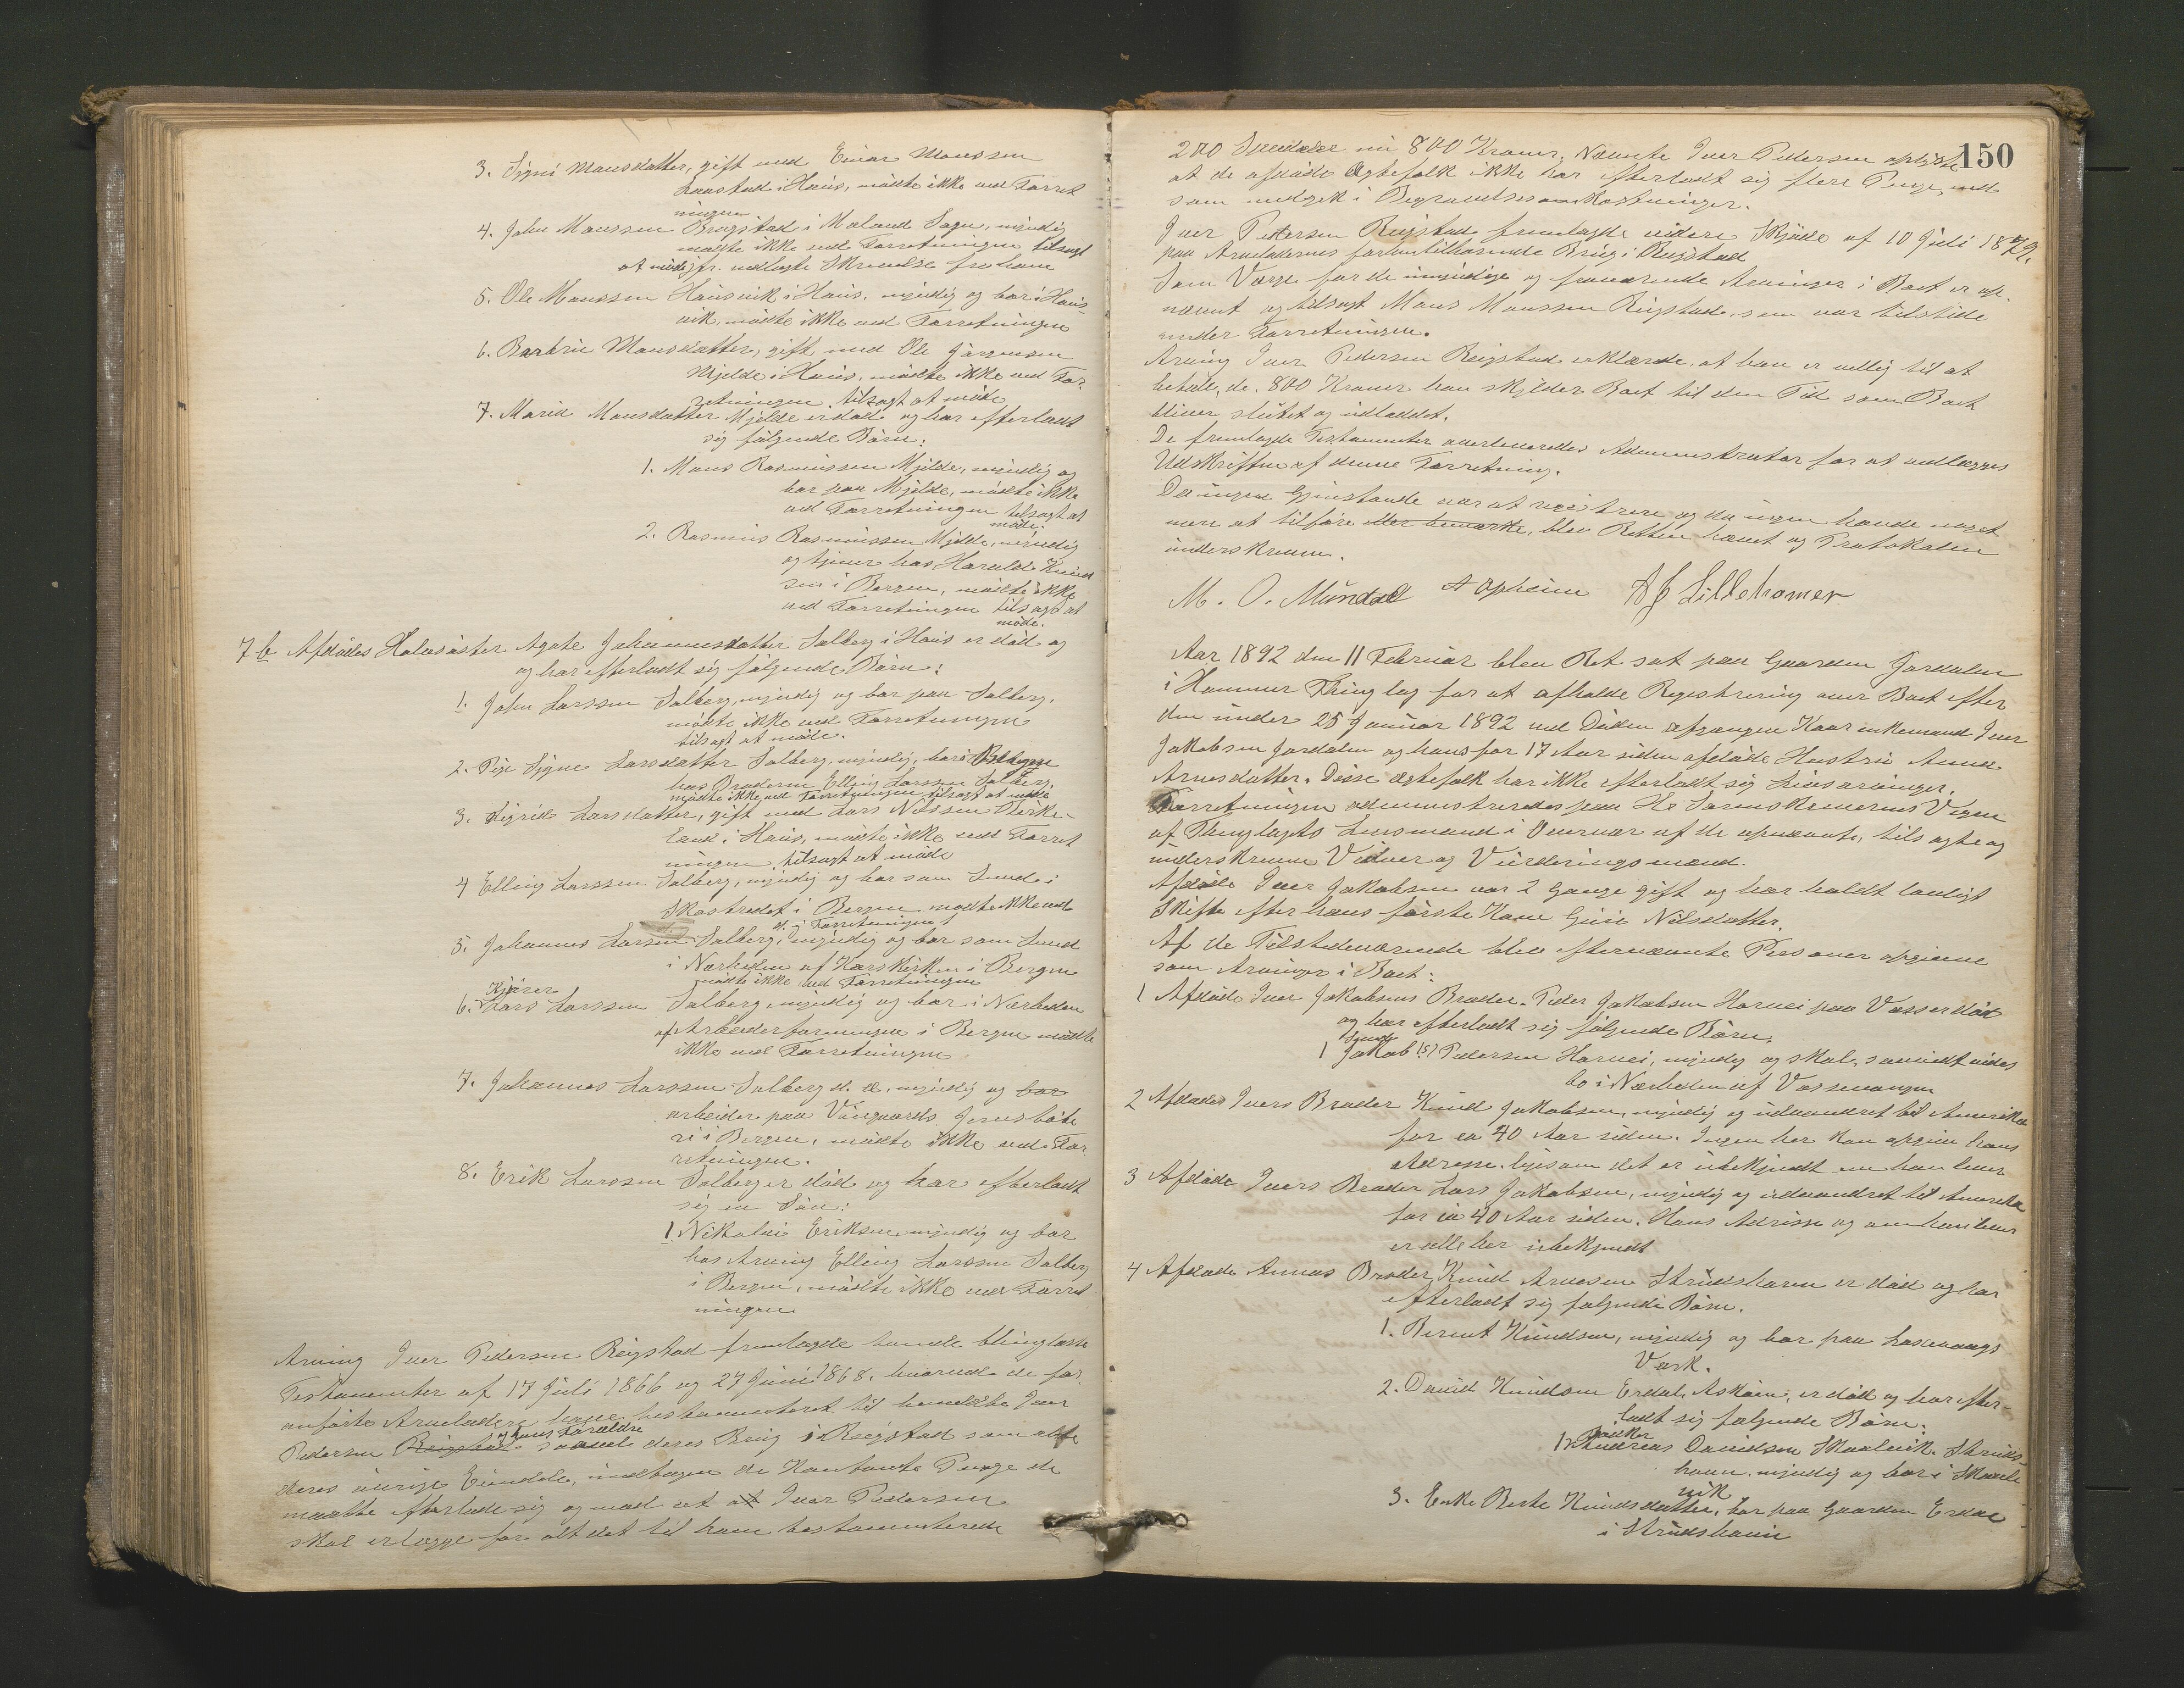 3. Signi Mansdatter, gift med Einar Monssen
Haustad i Haus, mödte ikke ved Forret
ningen
4. John Monssen Brugstad i Maland Sogn, myndig
mödte ikke ved Forretningen tilsagt
at möde jfr. vedlagte Skrivelse fra ham
5. Ole Monssen Hausvik i Haus, myndig og bor i Haus
vik, mödte ikke ved Forretningen
6. Barbru Monsdatter, gift med Ole Jörgensen
Mjelde i Haus, mödte ikke ved For-
retningen tilsagt at möde
7. Marid Monsdatter Mjelde er död og har efterladt
sig fölgende Börn:
1. Mons Rasmussen Mjelde, myndig og
bor paa Mjelde, mödte ikke
ved Forretningen tilsagt at
möde.
2. Rasmus Rasmussen Mjelde, myndig
og tjener hos Harald Knud
sen i Bergen, mödte ikke
ved Forretningen tilsagt at
möde.
7 b Afdödes Halvsöster Agate Johannesdatter Solberg i Haus er död og
og har efterladt sig fölgende Börn:
1. John Larssen Solberg, myndig og bor paa Solberg,
mödte ikke ved Forretningen
tilsagt at möde.
2. Pige Signe Larsdatter Solberg, myndig, bor i Bergen
hos Broderen Elling Larssen Solberg,
mödte ikke ved Forretningen tilsagt at möde
3. Sigrid Larsdatter, gift med Lars Nilssen Sterke-
land i Haus, mödte ikke ved Forret
ningen tilsagt at möde
4 Elling Larssen Solberg, myndig og bor som Smed i
Skostredet i Bergen mödte ikke ved
Forretningen
5. Johannes Larssen Solberg, d. y. myndig og bor som Smed
i Nærheden af Korskirken i Bergen
mödte ikke ved Forretningen
Kjörer
6. Lars Larssen Solberg myndig og bor i Nærheden
af Arbeiderforeningen i Bergen mödte
ikke ved Forretningen
7. Johannes Larssen Solberg d. æ. myndig og bor
arbeider paa Wingaards Jernstöbe
ri i Bergen, mödte ikke ved For
retningen.
8. Erik Larssen Solberg er död og har efterladt
sig en Sön:
1. Nikolai Eriksen, myndig og bor
hos Arving Elling Larssen Solberg
i Bergen, mödte ikke ved Forret
ningen
Arving Iver Pedersen Reigstad fremlagde tvende thinglæste
Testamenter af 17 Juli 1866 og 27 Juni 1868, hvorved de for
anförte Arveladere have testamenteret til bemeldte Iver
Pedersen Reigstad og hans Forældre saavel deres Brug i Reigstad som alle
deres övrige Eiendele, undtagen de Kontante Penge de
maatte efterlade sig og mod at at Iver Pedersen
skal erlægge for alt det til ham testamenterede
150
200 Speciedaler nu 800 Kroner. Nævnte Iver Pedersen oplyste
at de afdöde Ægtefolk ikke har efterladt sig flere Penge, end
som medgik i Begravelsesomkostninger.
Iver Pedersen Reigstad fremlagde videre Skjöde af 10 Juli 1879.
paa Arveladernes forhen tilhörende Brug i Reigstad
Som Værge for de umyndige og fraværende Arvinger i Boet er op-
nævnt og tilsagt Mons Monssen Reigstad, som var tilstede
under Forretningen.
Arving Iver Pedersen Reigstad erklærede, at han er villig til at
betale de 800 Kroner han skylder Boet til den Tid som Boet
bliver sluttet og udloddet.
De fremlagte Testamenter overleveredes Administrator for at vedlægges
Udskriften af denne Forretning.
Da ingen Gjenstande var at registrere og da ingen havde noget
mere at tilföre eller bemærke, blev Retten hævet og Protokolen
underskreven.
M. O. Mundal A Opheim A J Lilletvedt
Aar 1892 den 11 Februar blev Ret sat paa Gaarden Jordalen
i Hammer Thinglag for at afholde Registrering over Boet efter
den under 25 Januar 1892 ved Döden afgangne Kaarenkemand Iver
Jakobsen Jordalen og hans for 17 Aar siden afdöde Hustru Anna
Arnesdatter. Disse Ægtefolk har ikke efterladt sig Livsarvinger.
Forretningen administreredes paa Hr Sorenskriverens Vegne
af Thinglagets Lensmand i Overvær af de opnævnte, tilsagte og
underskrevne Vidner og Vurderingsmænd.
Afdöde Iver Jakobsen var 2 Gange gift og har holdt lovligt
Skifte efter hans förste Kone Guri Nilsdatter.
Af de Tilstedeværende blev efternævnte Personer opgivne
som Arvinger i Boet:
1 Afdöde Iver Jakobsens Broder Peder Jakobsen Horvei paa Voss er död
og har efterladt sig fölgende Börn.
1 Jakob (?) Pedersen Horvei, myndig og skal, saavidt vides
bo i Nærheden af Vossevangen
2 Afdödes Ivers Broder Knud Jakobsen, myndig og udvandret til Amerika
for ca 40 Aar siden. Ingen her kan opgive hans
Adresse, ligesom det er ubekjendt om han lever
3 Afdöde Ivers Broder Lars Jakobsen, myndig og udvandret til Amerika
for ca 40 Aar siden. Hans Adresse og om han lever
er alle her ubekjendt
4 Afdöde Annas Broder Knud Arnesen Strudshavn er död og har
efterladt sig fölgende Börn.
1. Bernt Knudsen, myndig og bor paa Laxevaags
Værk.
2. David Knudsen Erdal, Asköen, er död og har efter-
ladt sig fölgende Börn:
1. Andreas Davidsen Skaalevik. Struds-
havn, myndig og bor i Skaale
vik
3. Enke Berte Knudsdatter, bor paa Gaarden Erdal
i Strudshavn